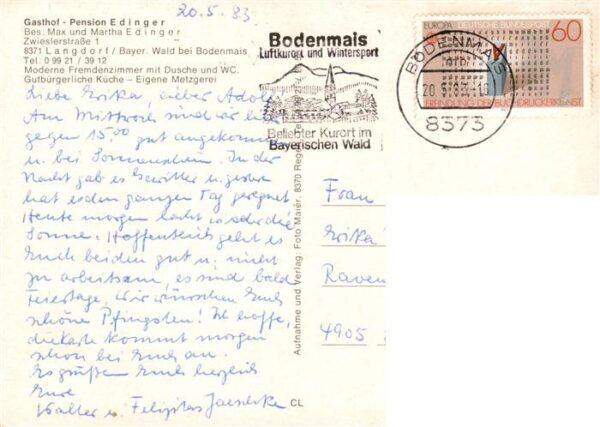 20.5.83
Gasthof - Pension Edinger
Bes: Max und Martha Edinger
Zwieslerstraße 1
8371 Langdorf / Bayer. Wald bei Bodenmais
Tel: 0 99 21 / 39 12
Moderne Fremdenzimmer mit Dusche und WC.
Gutbürgerliche Küche – Eigene Metzgerei
Liebe Erika, lieber Adolf
Am Mittwoch sind wir
gegen 15.00 gut angekommen
u. bei Sonnenschein. In der
Nacht gab es Gewitter u. gestern
hat es den ganzen Tag geregnet
Heute morgen lacht wieder die
Sonne. Hoffentlich geht es
Euch beiden gut u. nicht
zu arbeitsam, es sind bald
Feiertage, wir wünschen Euch
schöne Pfingsten! Ich hoffe,
die Karte kommt morgen
schon bei Euch an.
Es grüßen Euch herzlich
Eure
Walter u. Felizitas Jaeschke
Bodenmais
Luftkurort und Wintersport
Beliebter Kurort im
Bayerischen Wald
EUROPA DEUTSCHE BUNDESPOST 60
ERFINDUNG DER BUCHDRUCKERKUNST
BODENMAIS
8373
Aufnahme und Verlag: Foto Maier, 8370
CL
Frau
Erika
Raven
4905